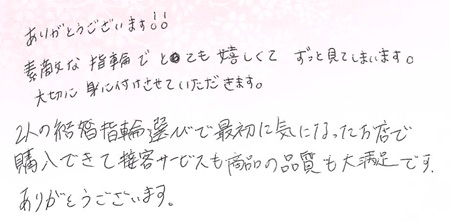 ありがとうございます!!
素敵な指輪でとても嬉しくて ずっと見てしまいます。
大切に身に付けさせていただきます。
2人の結婚指輪選びで最初に気になったお店で
購入できて接客サービスも商品の品質も大満足です.
ありがとうございます。